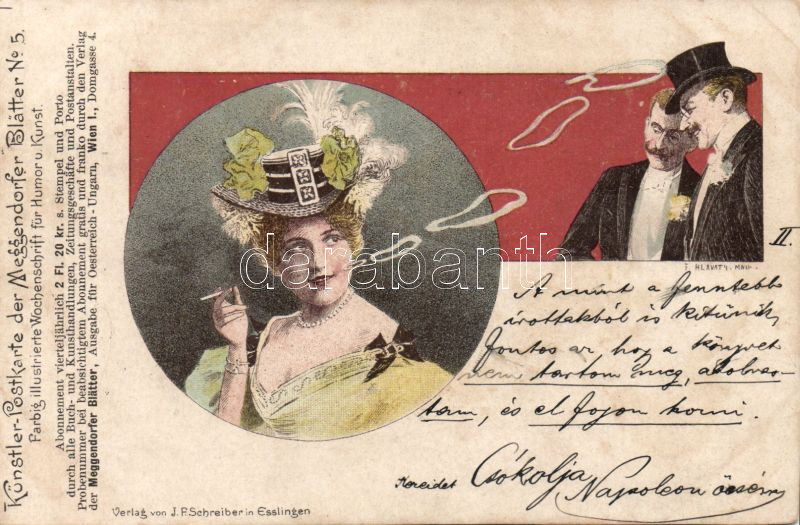 Künstler-Postkarte der Meggendorfer Blätter No 5.
Farbig illustrierte Wochenschrift für Humor u. Kunst.
Abonnement vierteljährlich 2 Fl. 20 kr. s. Stempel und Porto
durch alle Buch- und Kunsthandlungen, Zeitungsgeschäfte und Postanstalten.
Probenummer bei beabsichtigtem Abonnement gratis und franko durch den Verlag
der Meggendorfer Blätter, Ausgabe für Oesterreich-Ungarn, Wien I., Domgasse 4.
F. HLAVATY.
II.
darabanth.com
A mint a fenntebb
írottakból is kitünik,
fontos az, hogy a könyvet
nem tartom meg,
és el fogom
Csókolja
Napoleon öcsém
Verlag von J.F.Schreiber in Esslingen